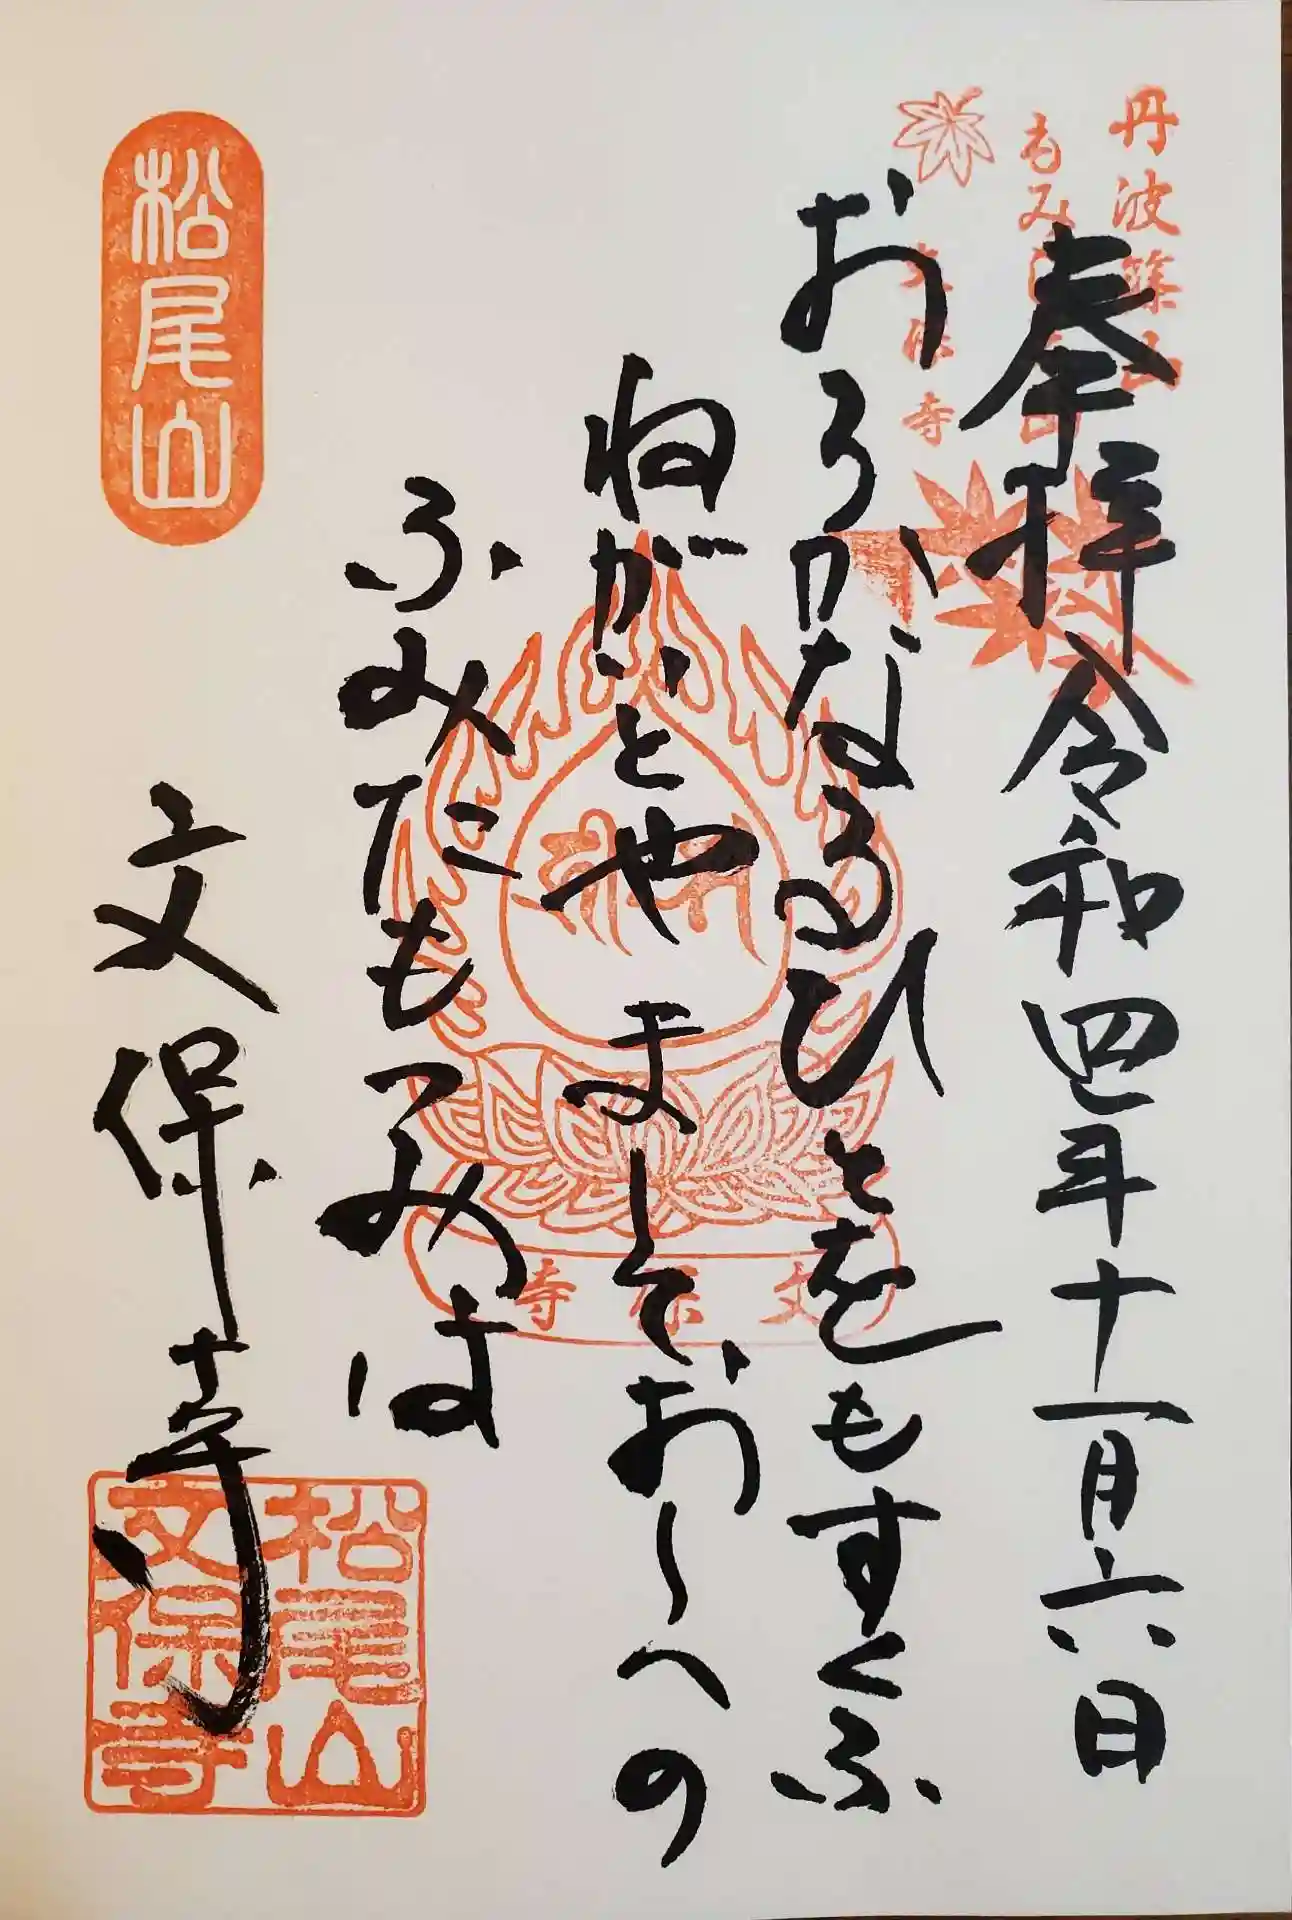 丹波篠山
奉拝 令和四年十一月六日
文保寺
おろかなるひとをもすくふ
ねがいとや ましておしへの
ふみたもつみは
文保寺
松尾山
文保寺
松尾山
文保寺